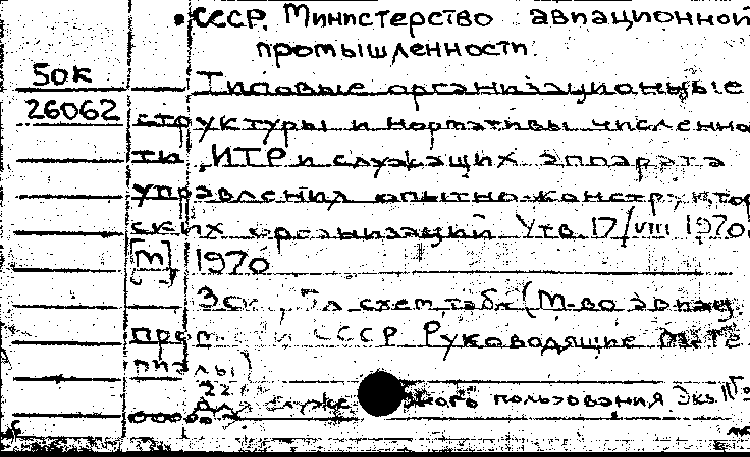 СССР. Министерство авиационной
промышленности.
50к
Типовые организационные
26062
структуры и нормативы численнос
ти ИТР и служащих аппарата
управления опытно-конструктор
ских организаций Утв. 17/VIII 1970
[М], 1970
схем, табл (М-во авиац
пром СССР Руководящие мате
риалы)
22
Для служебного пользования Экз